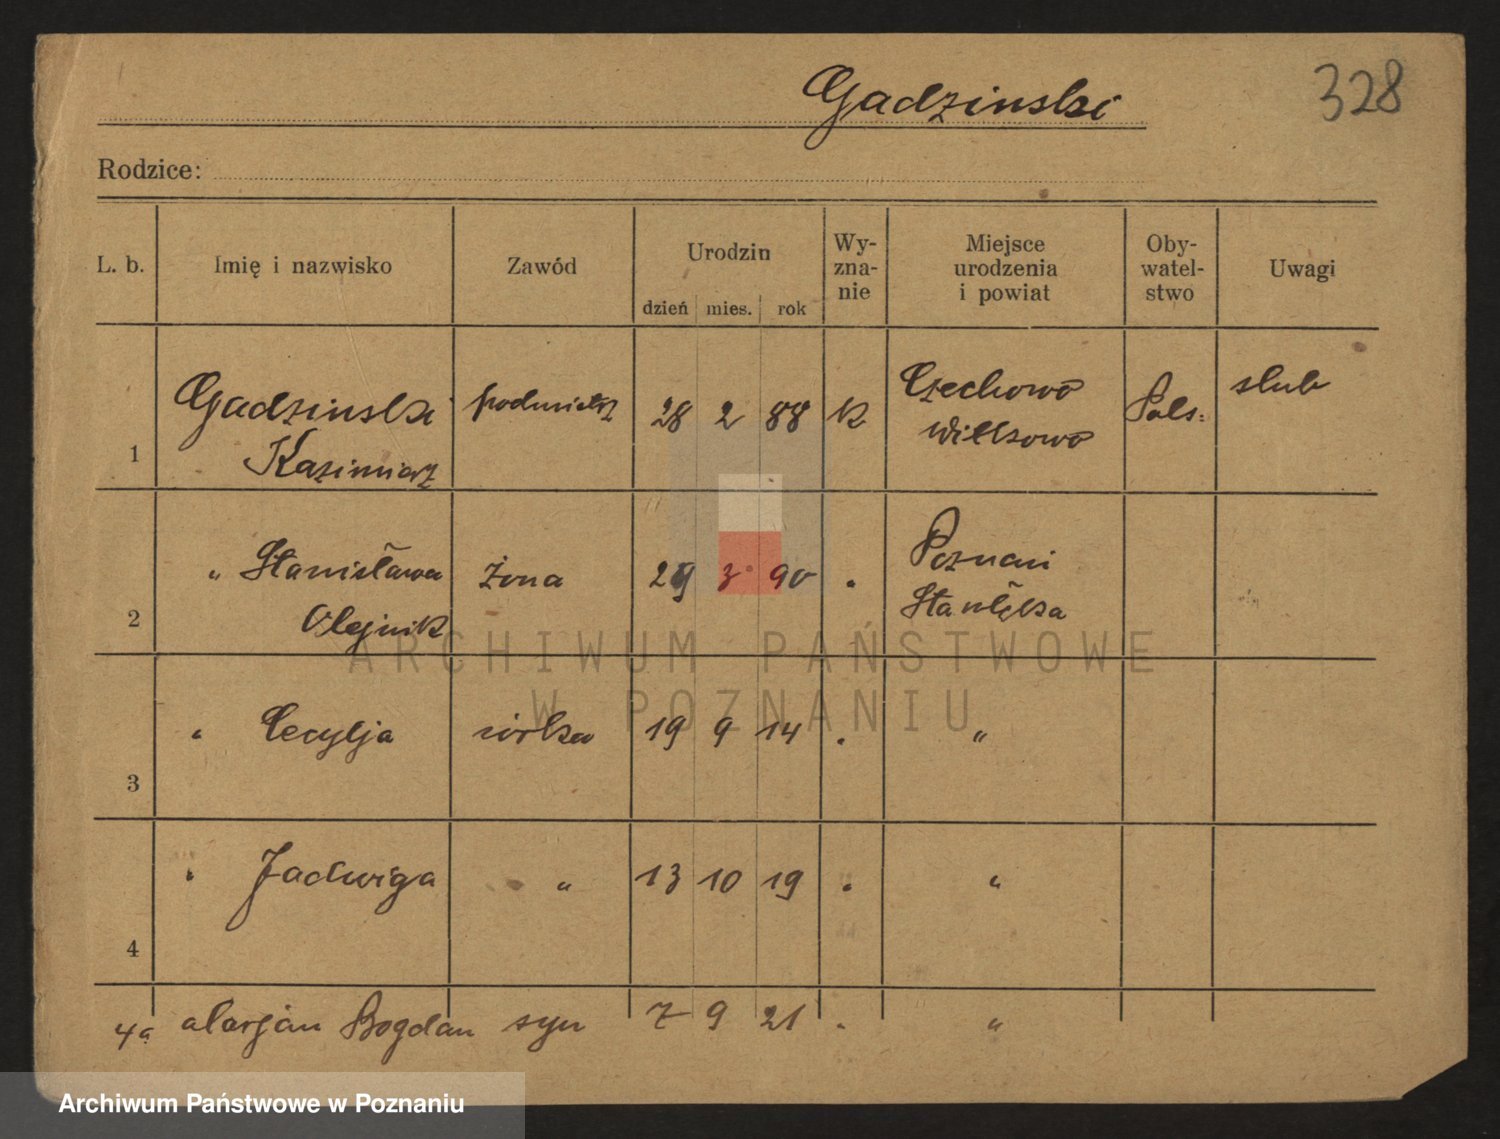 Gadzinski
328
Rodzice:
L. b. Imię i nazwisko Zawód Urodzin dzień mies. rok Wy-zna-nie Miejsce urodzenia i powiat Oby-watel-stwo Uwagi
1 Gadzinski Kazimierz 28 2 88 K Czechowo Witkowo Pols: slub
2 " Stanisława Olejnik żona 29 3 90 " Poznań
3 " Cecylja córka 19 9 14 " "
4 " Jadwiga " 13 10 19 " "
4a Marjan Bogdan syn 7 9 21 " "
ARCHIWUM PAŃSTWOWE
W POZNANIU
Archiwum Państwowe w Poznaniu